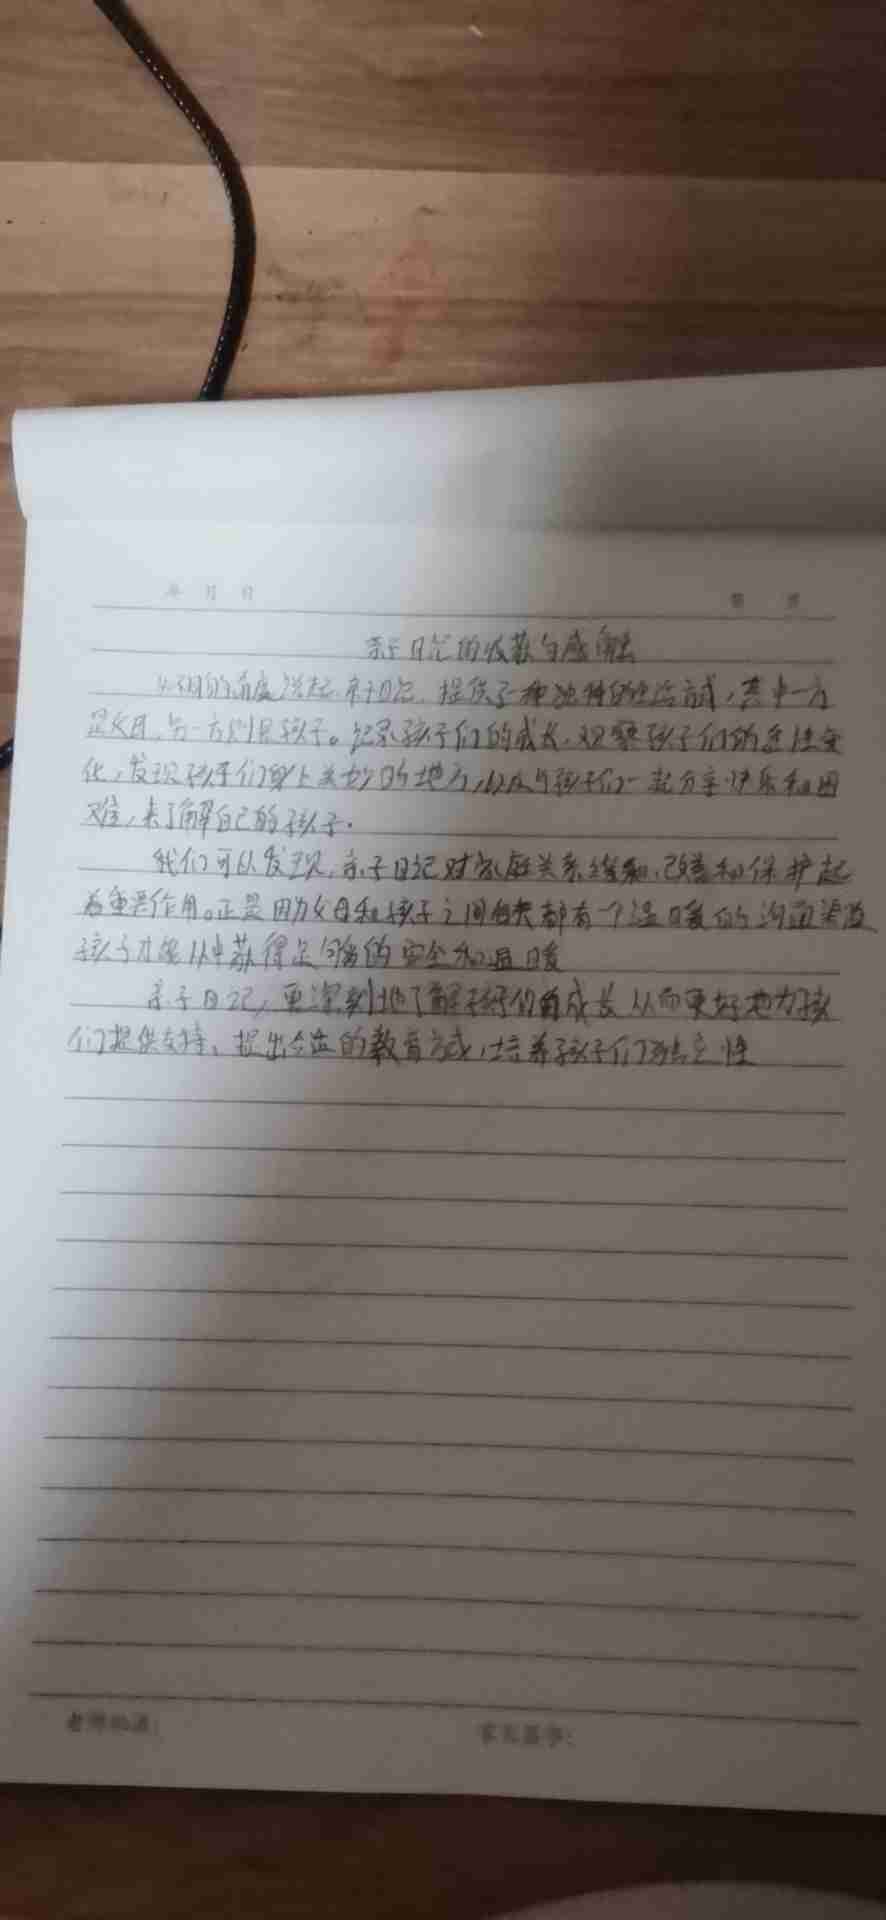 年 月 日
第 页
亲子日记的收获与感触
不同的角度说起,亲子日记,提供了一种独特的生活方式,其中一方
是父母,另一方则是孩子。记录孩子们的成长,观察孩子们的个性变
化,发现孩子们身上美妙的地方,以及与孩子们一起分享快乐和困
难,来了解自己的孩子.
我们可以发现,亲子日记对家庭关系缓和、改善和保护起
着重要作用。正是因为父母和孩子之间有都有一个温暖的沟通渠道
孩子才能从中获得足够的安全和温暖
亲子日记,更深刻地了解孩子们的成长从而更好地为孩
们提供支持、提出合适的教育方式,培养孩子们独立性
老师的话:
家长签字: